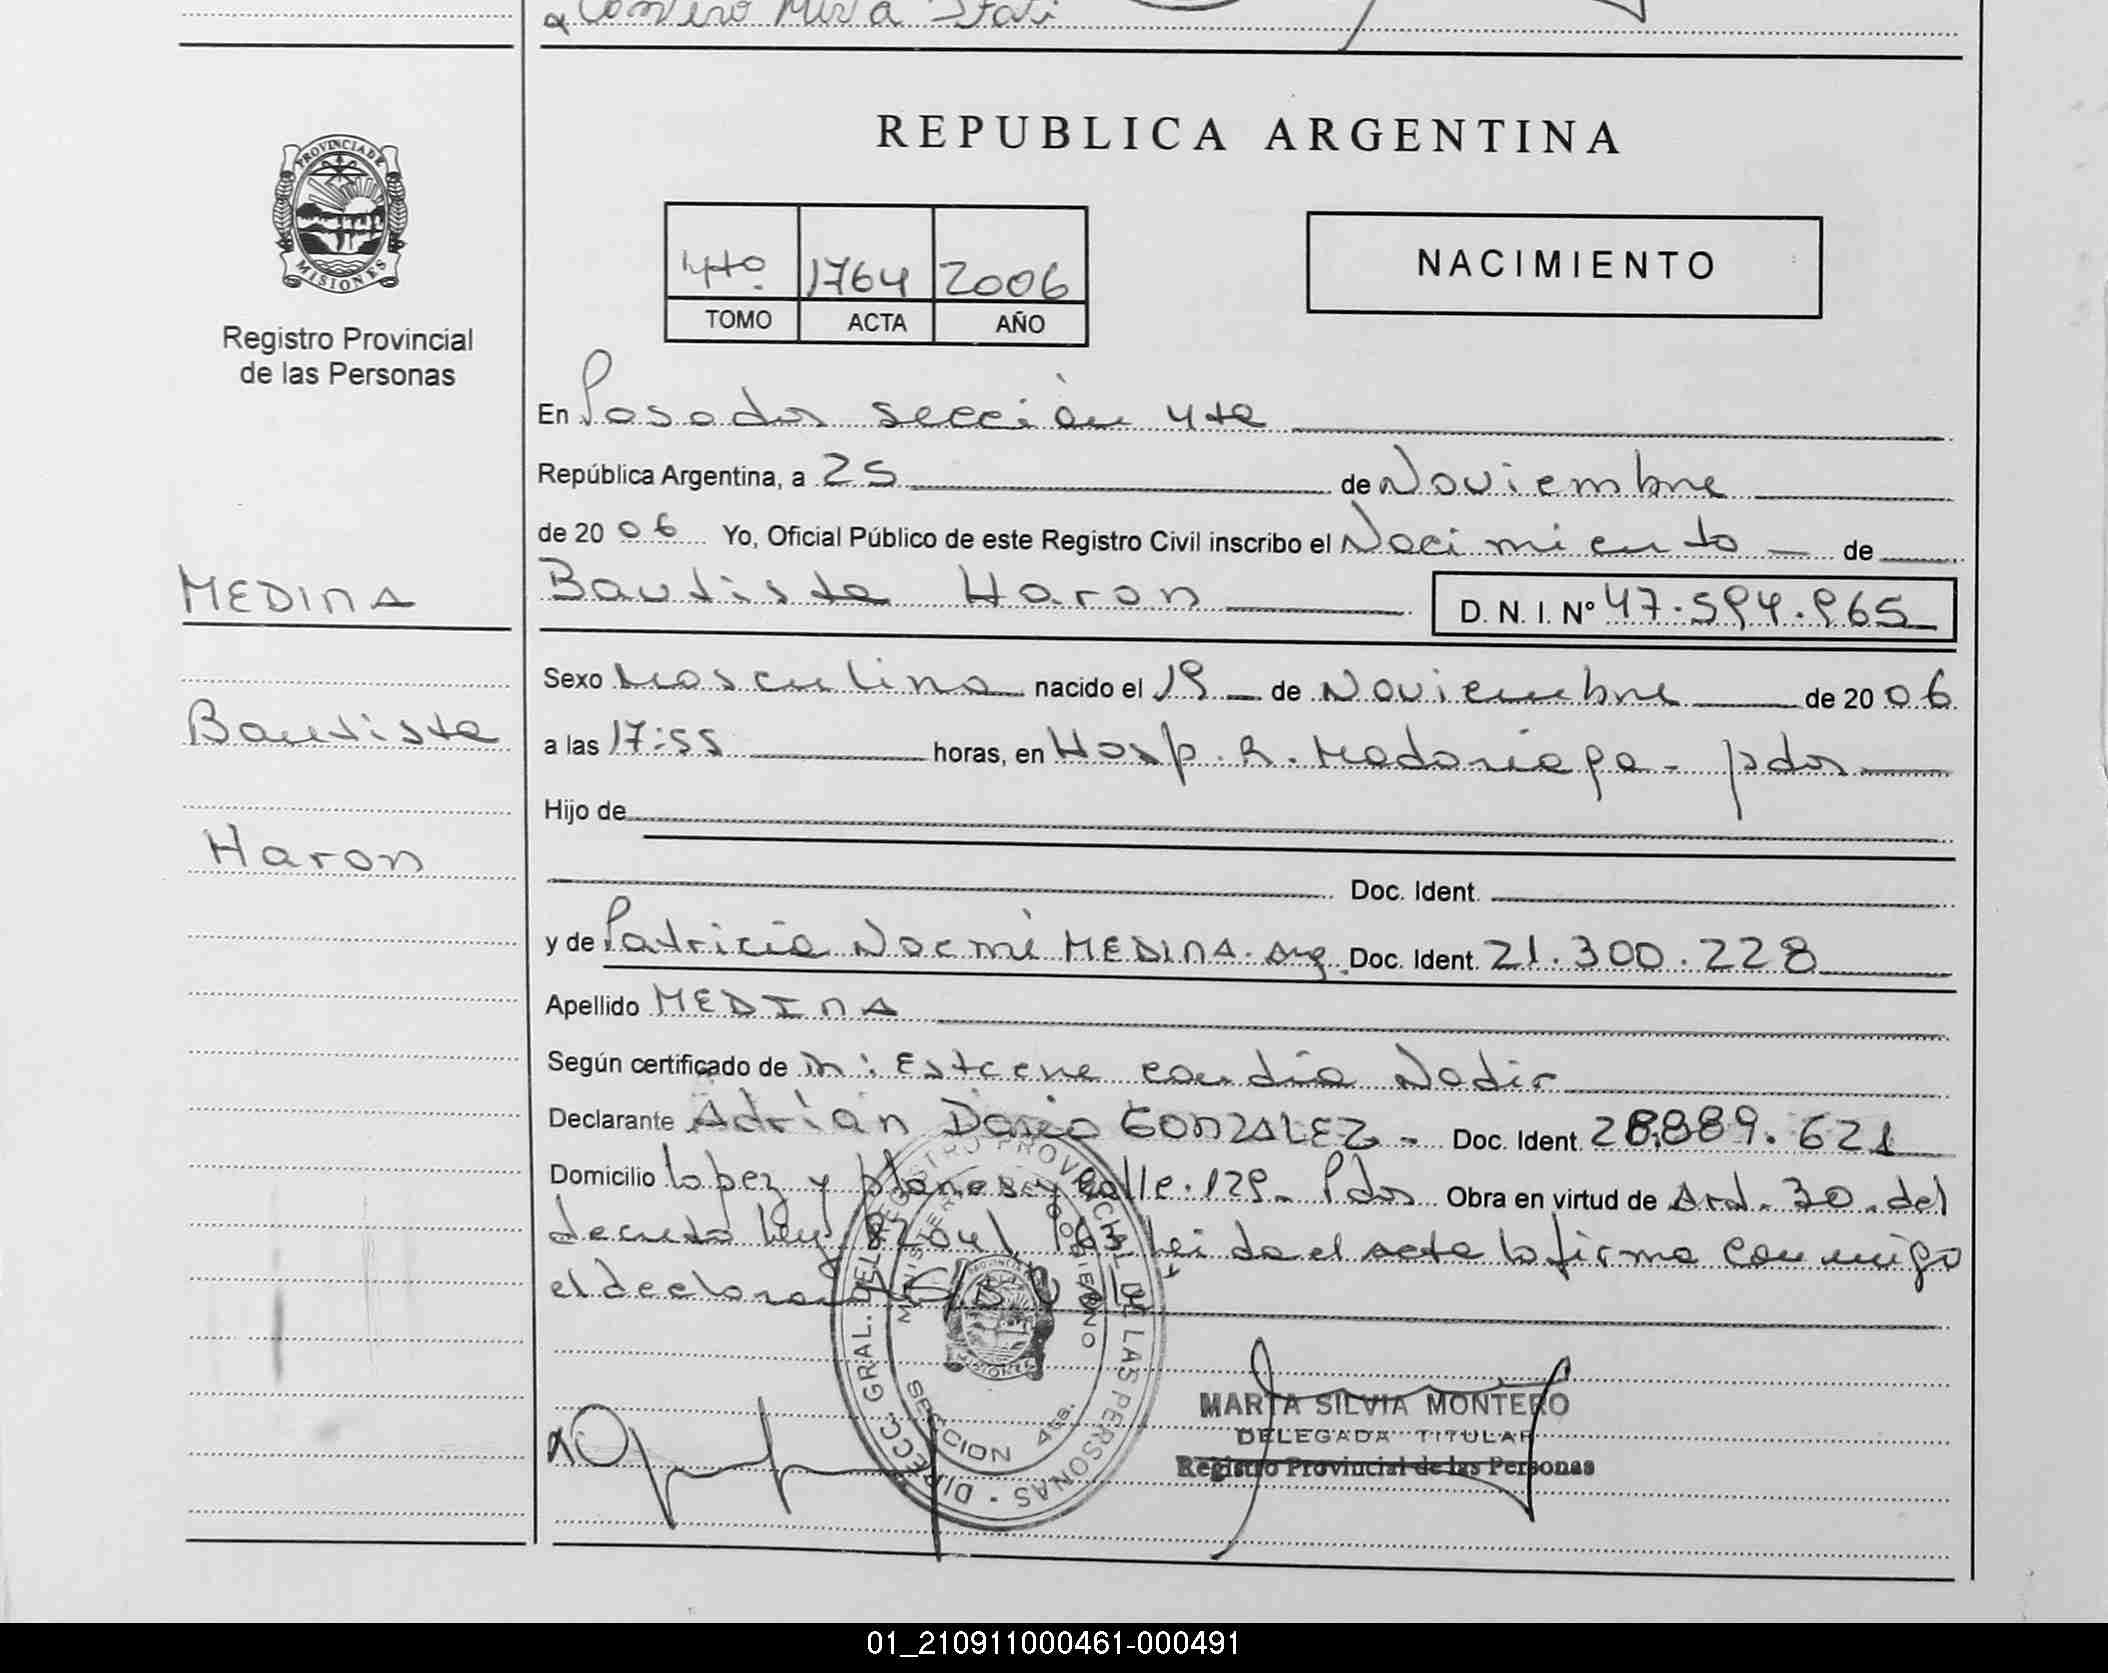 REPUBLICA ARGENTINA
PROVINCIA DE
MISIONES
Registro Provincial
de las Personas
4to 1764 2006
TOMO ACTA AÑO
NACIMIENTO
En Posadas sección 4ta
República Argentina, a 25 de Noviembre
de 20 06 Yo, Oficial Público de este Registro Civil inscribo el Nacimiento de
MEDINA
Bautista Haron D. N. I. Nº 47.594.965
Sexo Masculino nacido el 19 de Noviembre de 20 06
Bautista
a las 17:55 horas, en Hosp. R. Madariaga - pdas
Hijo de
Haron
Doc. Ident.
y de Patricia Noemí MEDINA. Arg. Doc. Ident. 21.300.228
Apellido MEDINA
Según certificado de Nadir
Declarante Adrián Dario GONZALEZ - Doc. Ident. 28.889.621
Domicilio Lopez y planes y calle 129 - Pdas Obra en virtud de Art. 30 del
decreto ley 8204/63 leída el acta la firma conmigo
el declarante
DIRECC. GRAL. DEL REGISTRO PROVINCIAL DE LAS PERSONAS
MINISTERIO DE GOBIERNO
SECCION 4ta.
MARTA SILVIA MONTERO
DELEGADA TITULAR
Registro Provincial de las Personas
01_210911000461-000491